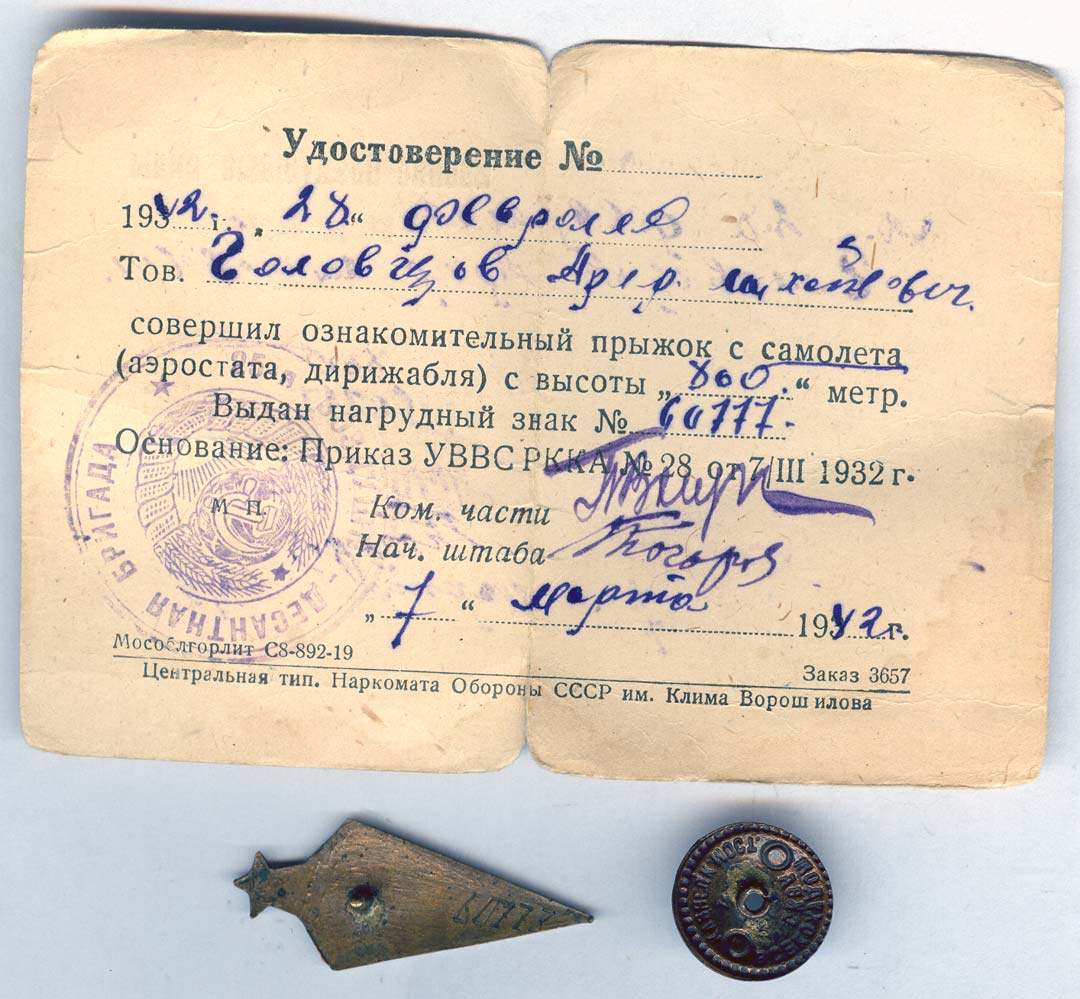 Удостоверение №
1942 г. „28“ февраля
Тов. Головцов Алер. Михайлович.
совершил ознакомительный прыжок с самолета
(аэростата, дирижабля) с высоты „800.“ метр.
Выдан нагрудный знак № 60777.
Основание: Приказ УВВС РККА № 28 от 7/III 1932 г.
м п. Ком. части
Нач. штаба
„7“ марта 1942 г.
Мособлгорлит С8-892-19
Заказ 3657
Центральная тип. Наркомата Обороны СССР им. Клима Ворошилова
ДЕСАНТНАЯ БРИГАДА
60777